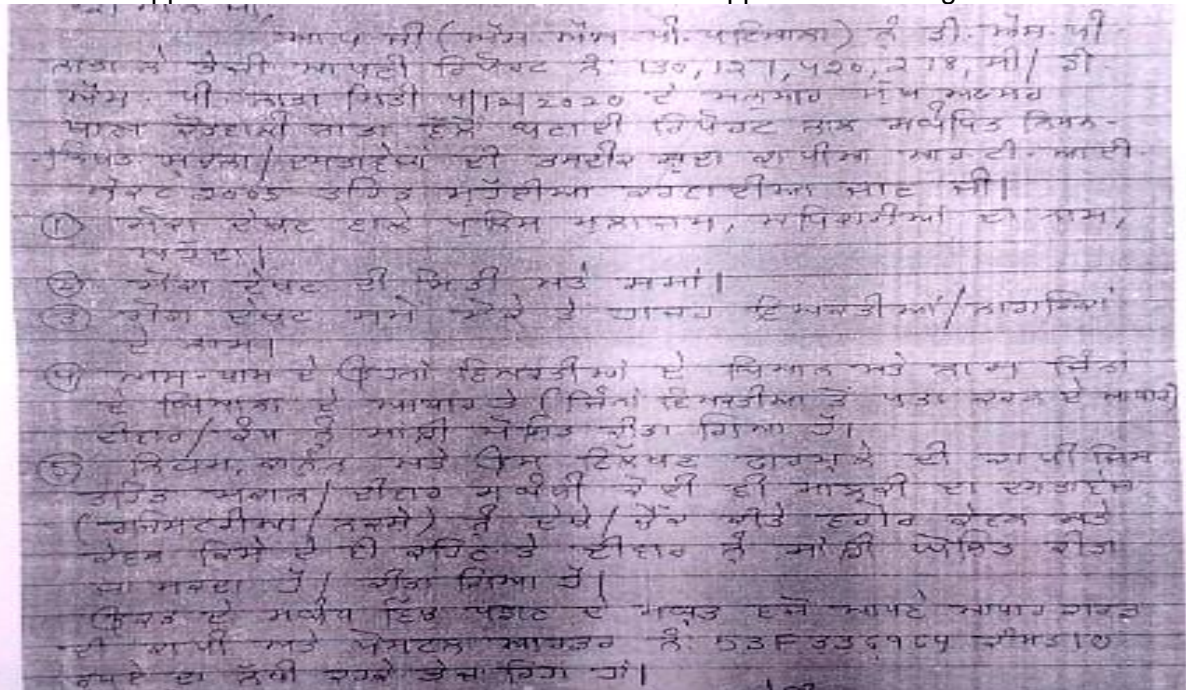 ਆਪ ਜੀ (ਐੱਸ. ਐੱਸ. ਪੀ. ਪਟਿਆਲਾ) ਨੂੰ ਡੀ. ਐੱਸ. ਪੀ.
ਨਾਭਾ ਨੇ ਭੇਜੀ ਆਪਣੀ ਰਿਪੋਰਟ ਨੰ: 130, ਸੀ/ ਡੀ.
ਐੱਸ. ਪੀ. ਨਾਭਾ ਮਿਤੀ 2020 ਦੇ ਅਨੁਸਾਰ ਮੁੱਖ ਅਫਸਰ
ਥਾਣਾ ਕੋਤਵਾਲੀ ਨਾਭਾ ਵੱਲੋਂ ਬਣਾਈ ਰਿਪੋਰਟ ਨਾਲ ਸਬੰਧਿਤ ਨਿਮਨ-
ਲਿਖਤ ਸੂਚਨਾ/ਦਸਤਾਵੇਜਾਂ ਦੀ ਤਸਦੀਕ ਸ਼ੁਦਾ ਕਾਪੀਆ ਆਰ. ਟੀ. ਆਈ.
ਐਕਟ 2005 ਤਹਿਤ ਮੁਹੱਈਆ ਕਰਵਾਈਆ ਜਾਣ ਜੀ।
① ਮੌਕਾ ਦੇਖਣ ਵਾਲੇ ਪੁਲਿਸ ਮੁਲਾਜਮ, ਅਧਿਕਾਰੀਆਂ ਦਾ ਨਾਮ,
ਅਹੁੱਦਾ।
② ਮੌਕਾ ਦੇਖਣ ਦੀ ਮਿਤੀ ਅਤੇ ਸਮਾਂ।
③ ਮੌਕਾ ਦੇਖਣ ਸਮੇ ਮੌਕੇ ਤੇ ਹਾਜਰ ਵਿਅਕਤੀਆਂ/ਨਾਗਰਿਕਾਂ
ਦੇ ਨਾਮ।
④ ਆਸ-ਪਾਸ ਦੇ ਉਹਨਾਂ ਵਿਅਕਤੀਆਂ ਦੇ ਬਿਆਨ ਅਤੇ ਨਾਮ ਜਿੰਨਾਂ
ਦੇ ਬਿਆਨਾ ਦੇ ਆਧਾਰ ਤੇ (ਜਿੰਨਾਂ ਵਿਅਕਤੀਆ ਤੋਂ ਪਤਾ ਕਰਨ ਦੇ ਆਧਾਰ)
ਦੀਵਾਰ/ਕੰਧ ਨੂੰ ਸਾਂਝੀ ਘੋਸ਼ਿਤ ਕੀਤਾ ਗਿਆ ਹੈ।
⑤ ਨਿਯਮ, ਕਾਨੂੰਨ ਅਤੇ ਉਸ ਫਾਰਮੂਲੇ ਦੀ ਕਾਪੀ ਜਿਸ
ਤਹਿਤ ਮਕਾਨ/ਦੀਵਾਰ ਸਬੰਧੀ ਕੋਈ ਵੀ ਦਾ ਦਸਤਾਵੇਜ
(ਰਜਿਸਟਰੀਆ/ਨਕਸ਼ੇ) ਨੂੰ ਦੇਖੇ/ਚੈੱਕ ਕੀਤੇ ਵਗੈਰ ਕੇਵਲ ਅਤੇ
ਕੇਵਲ ਕਿਸੇ ਦੇ ਵੀ ਕਹਿਣ ਤੇ ਦੀਵਾਰ ਨੂੰ ਸਾਂਝੀ ਘੋਸ਼ਿਤ ਕੀਤਾ
ਜਾ ਸਕਦਾ ਹੈ/ ਕੀਤਾ ਗਿਆ ਹੈ।
ਉਕਤ ਦੇ ਸਬੰਧ ਵਿੱਚ ਪਛਾਣ ਦੇ ਸਬੂਤ ਵਜੋਂ ਆਪਣੇ ਆਧਾਰ ਕਾਰਡ
ਦੀ ਕਾਪੀ ਅਤੇ ਪੋਸਟਲ ਆਰਡਰ ਨੰ: 53F ਕੀਮਤ 10
ਰੁਪਏ ਦਾ ਨੱਥੀ ਕਰਕੇ ਭੇਜ ਰਿਹਾ ਹਾਂ।